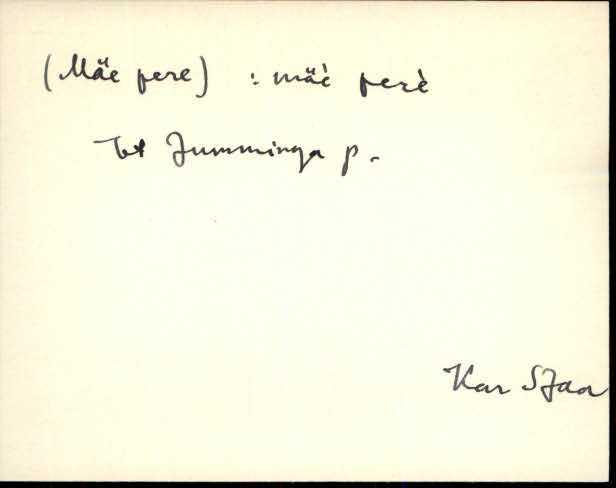 (Mäe pere) : mäè perè
tt Jumminga p.
Kar SJaa